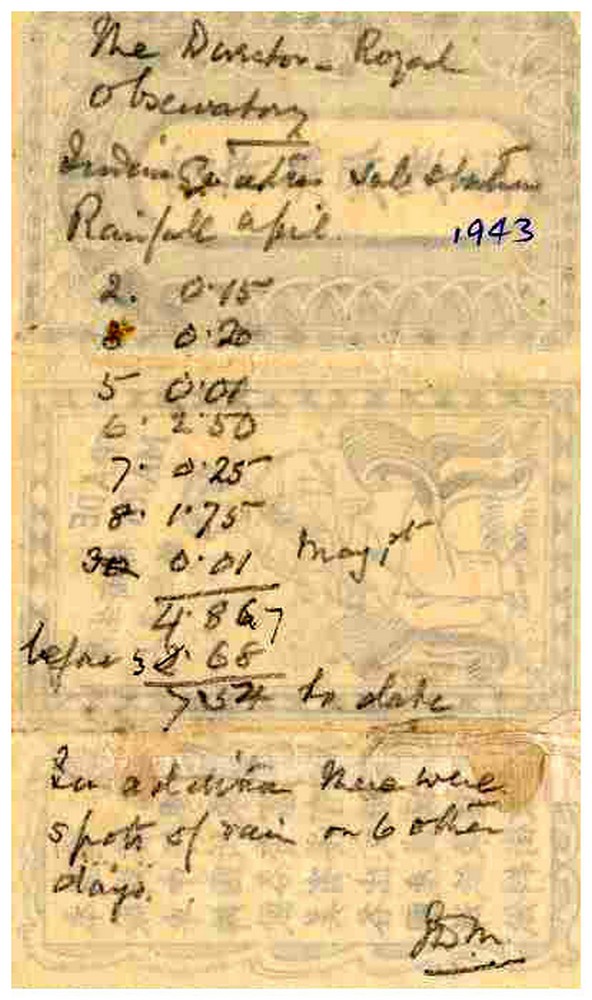 The Director - Royal
Observatory
sub station
Rainfall April. 1943
2. 0.15
3 0.20
5 0.01
6. 2.50
7. 0.25
8. 1.75
30 0.01 May 1st
4.867
before 2.68
7.54 to date
In addition there were
spots of rain on 6 other
days.